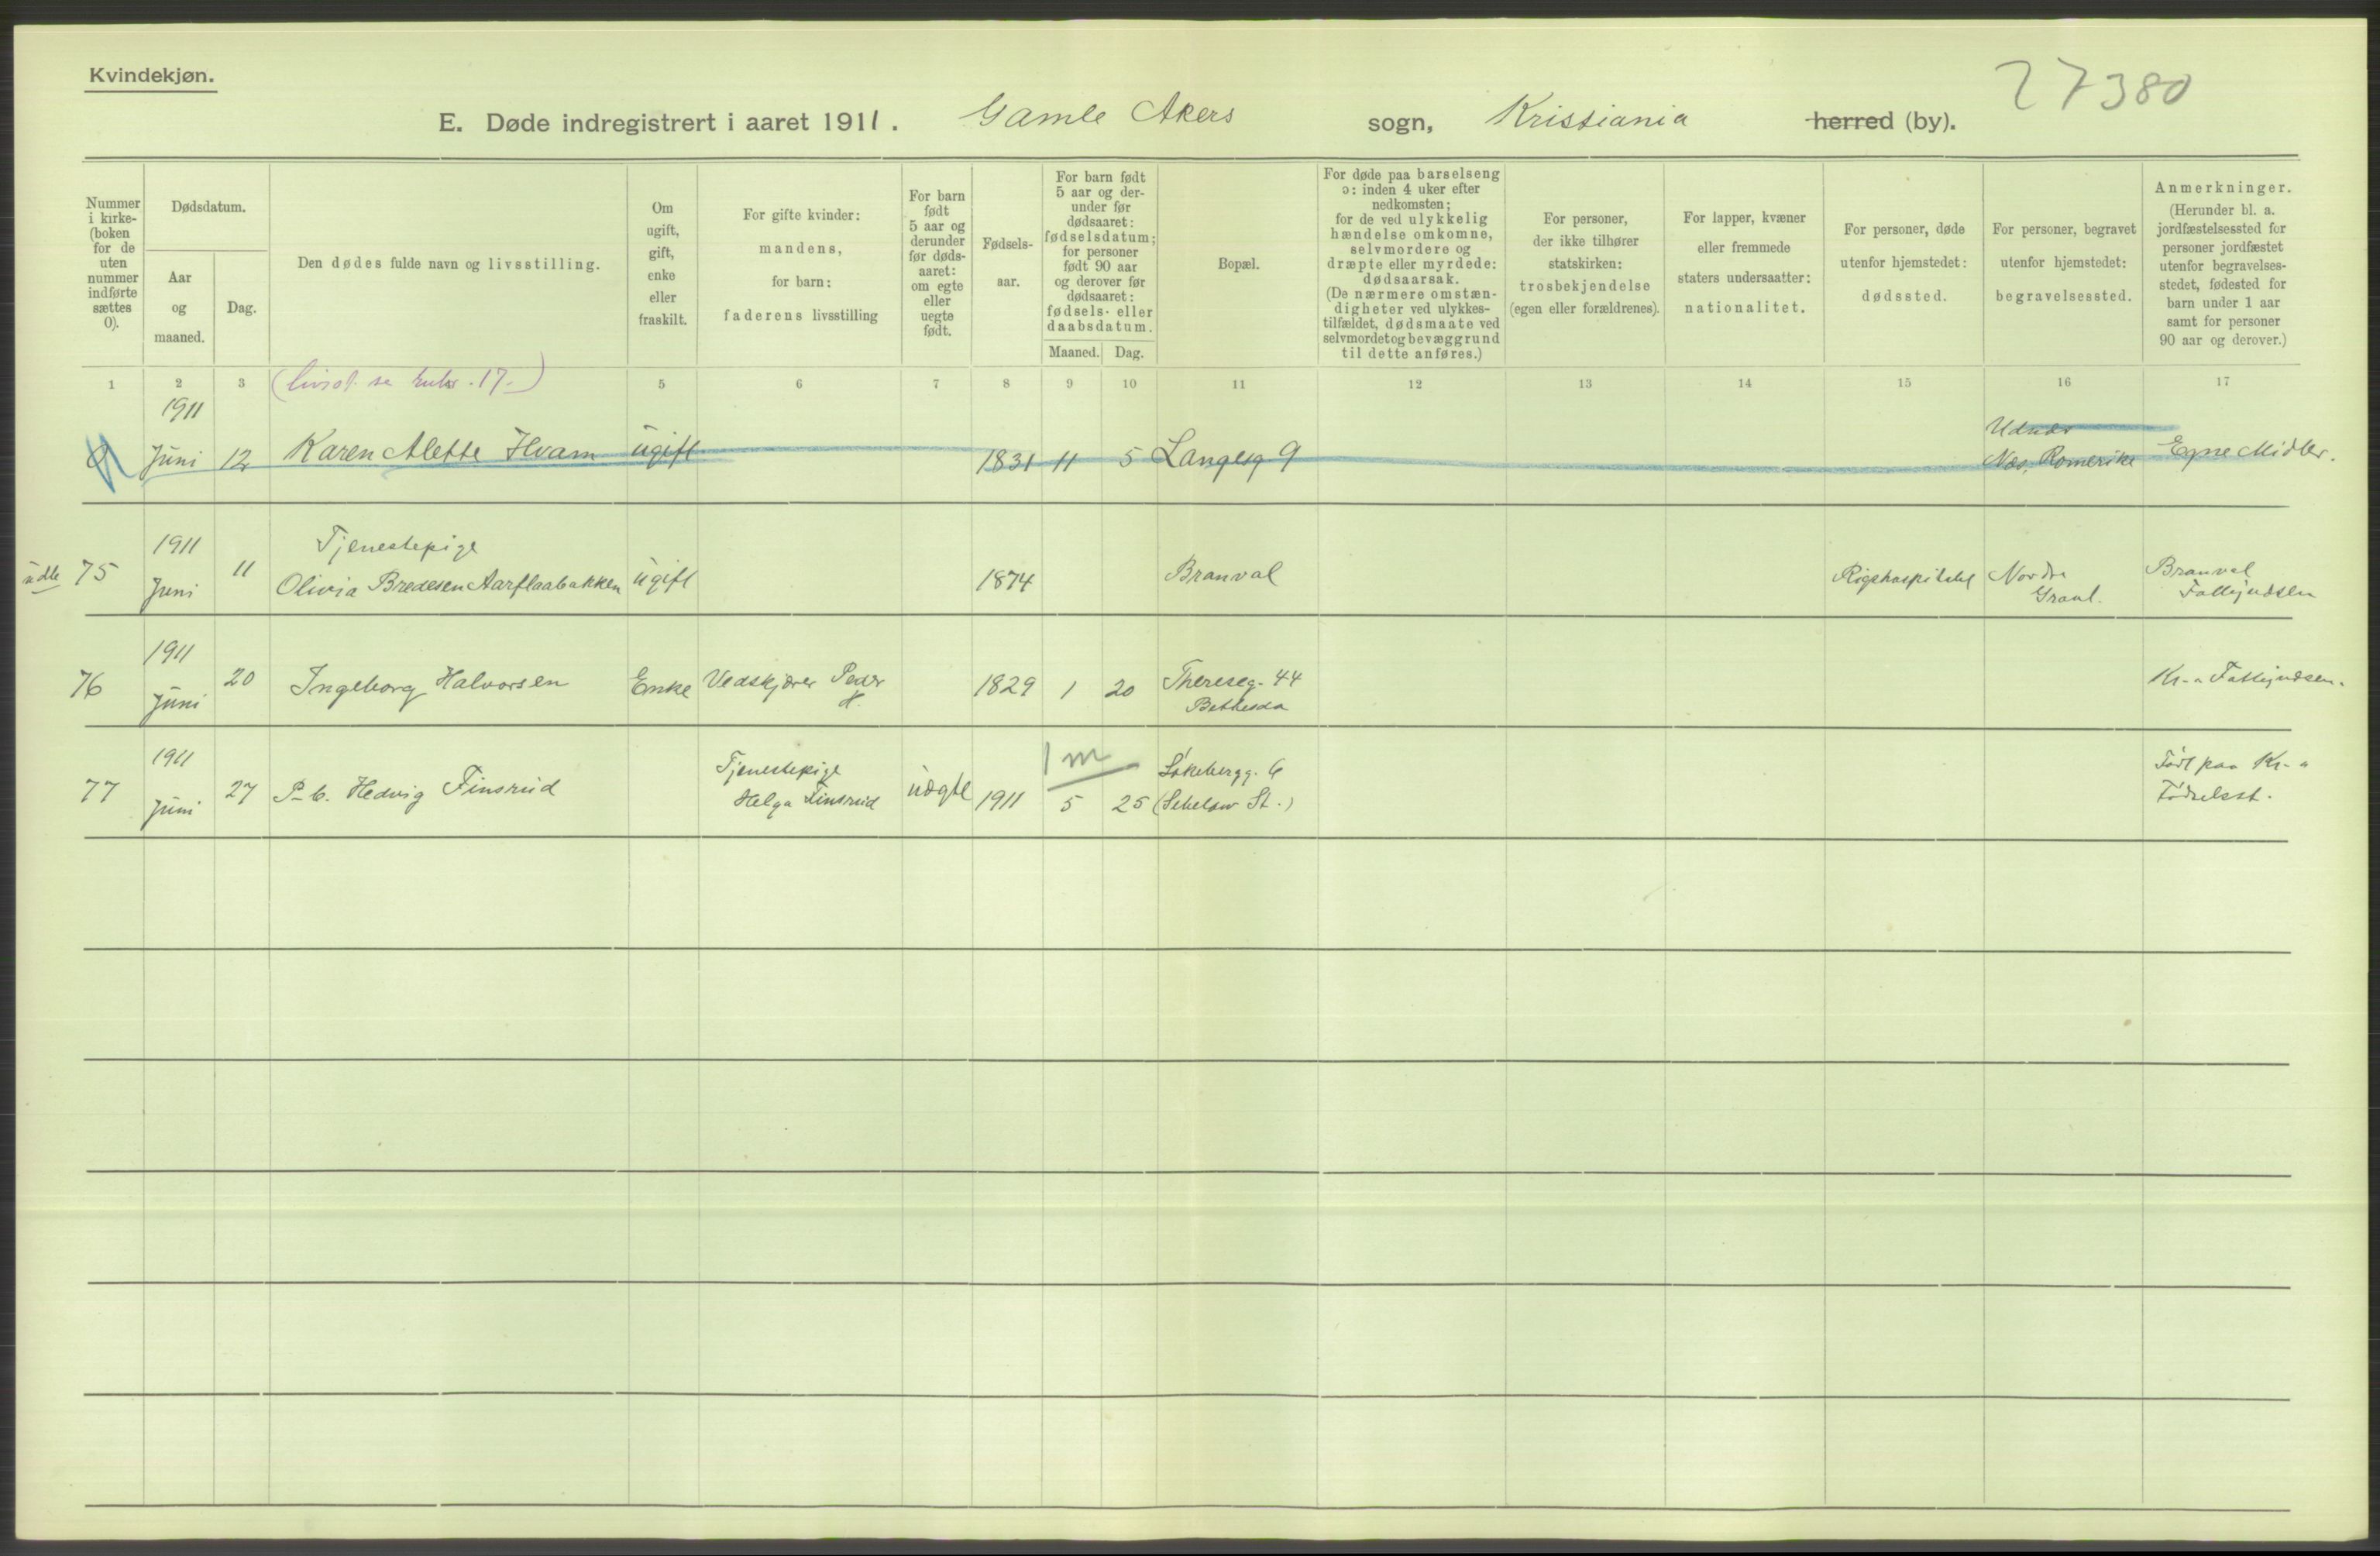 Kvindekjøn.
27380
E. Døde indregistrert i aaret 1911. Gamle Akers sogn, Kristiania herred (by).
Nummer i kirke-(boken for de uten nummer indførte sættes 0).
Dødsdatum.
Aar og maaned.
Dag.
Den dødes fulde navn og livsstilling.
Om ugift, gift, enke eller fraskilt.
For gifte kvinder: mandens, for barn: faderens livsstilling
For barn født 5 aar og derunder før døds-aaret: om egte eller uegte født.
Fødsels-aar.
For barn født 5 aar og der-under før dødsaaret: fødselsdatum; for personer født 90 aar og derover før dødsaaret: fødsels- eller daabsdatum.
Maaned. Dag.
Bopæl.
For døde paa barselseng ɔ: inden 4 uker efter nedkomsten; for de ved ulykkelig hændelse omkomne, selvmordere og dræpte eller myrdede: dødsaarsak. (De nærmere omstæn-digheter ved ulykkes-tilfældet, dødsmaate ved selvmordet og bevæggrund til dette anføres.)
For personer, der ikke tilhører statskirken: trosbekjendelse (egen eller forældrenes).
For lapper, kvæner eller fremmede staters undersaatter: nationalitet.
For personer, døde utenfor hjemstedet: dødssted.
For personer, begravet utenfor hjemstedet: begravelsessted.
Anmerkninger. (Herunder bl. a. jordfæstelsessted for personer jordfæstet utenfor begravelses-stedet, fødested for barn under 1 aar samt for personer 90 aar og derover.)
1 2 3 5 6 7 8 9 10 11 12 13 14 15 16 17
(livsst. se rubr. 17.)
1911
0 Juni 12 Karen Alette Hvam ugift 1831 11 5 Langesg 9 Næs, Romerike Egne Midler.
1911 Tjenestepige
75 Juni 11 Olivia Bredesen Aarflaabakken ugift 1874 Branval Rigshospitalet Nordre Branval
1911
76 Juni 20 Ingeborg Halvorsen Enke Vedskjærer Peder H. 1829 1 20 Thereseg. 44 Kr-a
Bethesda
1911 Tjenestepige 1 m Født paa Kr-a
77 Juni 27 P-b. Hedvig Finsrud Helga Finsrud uægte 1911 5 25 Fødselsst.